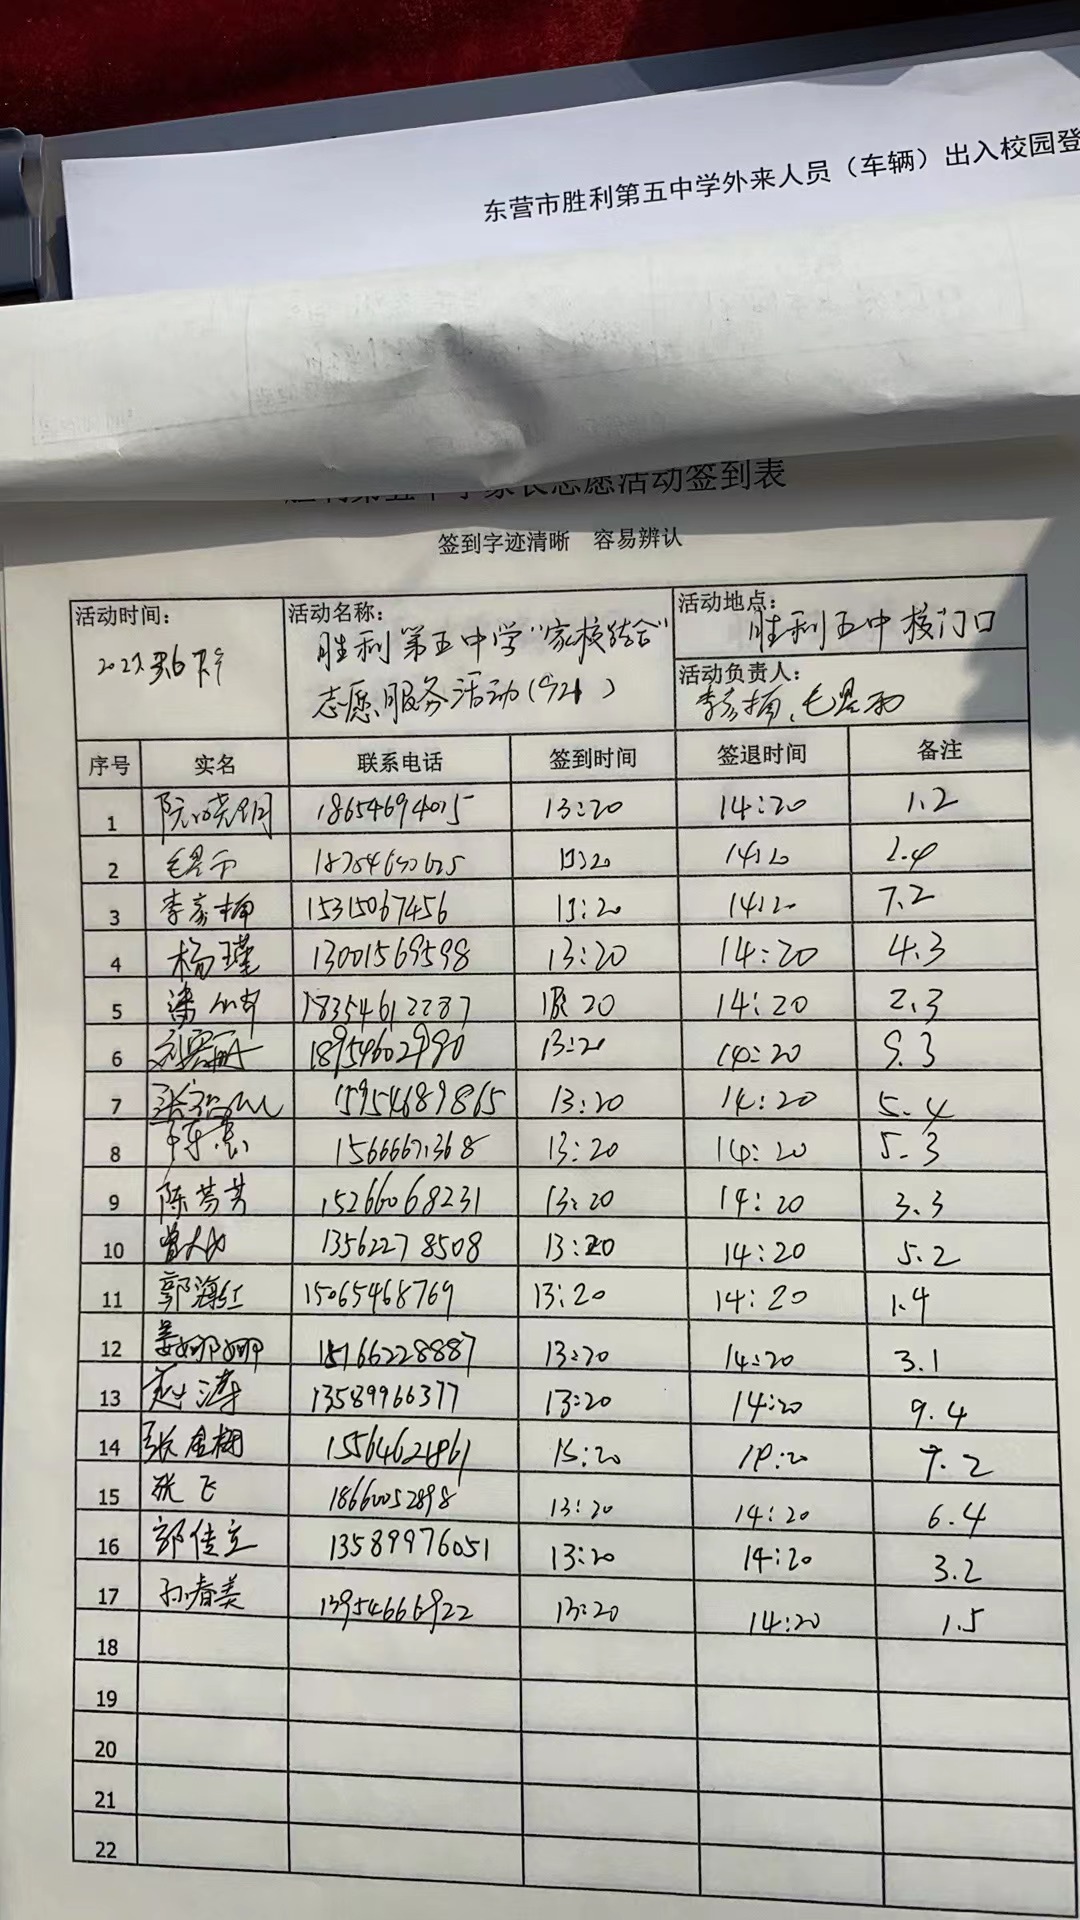 东营市胜利第五中学外来人员（车辆）出入校园登
签到表
签到字迹清晰 容易辨认
活动时间：
活动名称： 胜利第五中学“家校结合”
志愿服务活动
活动地点： 胜利五中校门口
活动负责人：
李彦楠、毛昱雨
序号 实名 联系电话 签到时间 签退时间 备注
1 13:20 14:20 1.2
2 14:20 2.4
3 李彦楠 15315067456 13:20 14:20 7.2
4 杨瑾 13001569598 13:20 14:20 4.3
5 18354612287 14:20 2.3
6 13:20 14:20
7 15954689865 13:20 14:20 5.4
8 13:20 14:20 5.3
9 陈芳芳 15266068231 13:20 14:20 3.3
10 13562278508 13:20 14:20 5.2
11 郭海红 15065468769 13:20 14:20 1.4
12 姜娜娜 15166228887 13:20 14:20 3.1
13 赵涛 13589966377 13:20 14:20 9.4
14 7.2
15 张飞 18660052898 13:20 14:20 6.4
16 郭佳立 13589976051 13:20 14:20 3.2
17 孙春美 13954666922 13:20 14:20 1.5
18
19
20
21
22